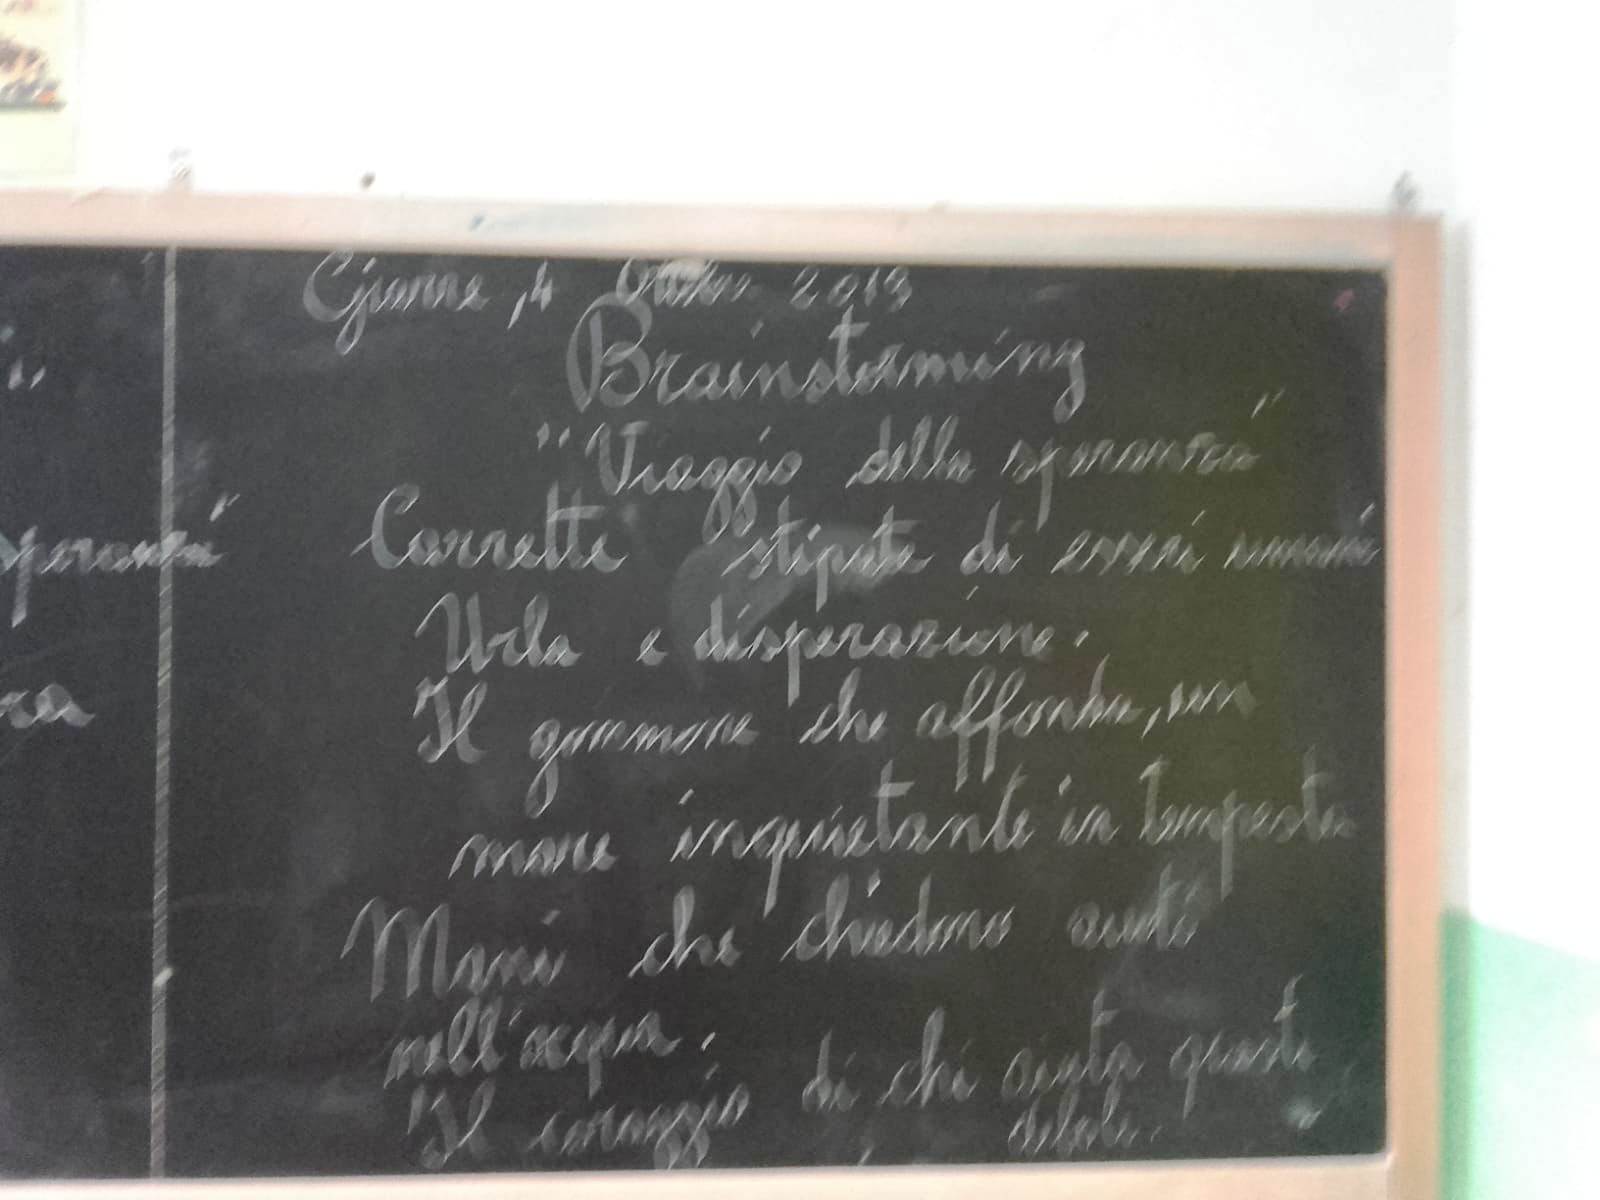 Giarre, 4 Ottobre 2013
Brainstorming
"Viaggio della speranza"
speranza"
Carrette stipate di esseri umani
Urla e disperazione.
Il gommone che affonda, un
mare inquietante in tempesta
Mani che chiedono aiuto
nell'acqua.
Il coraggio di chi aiuta questi